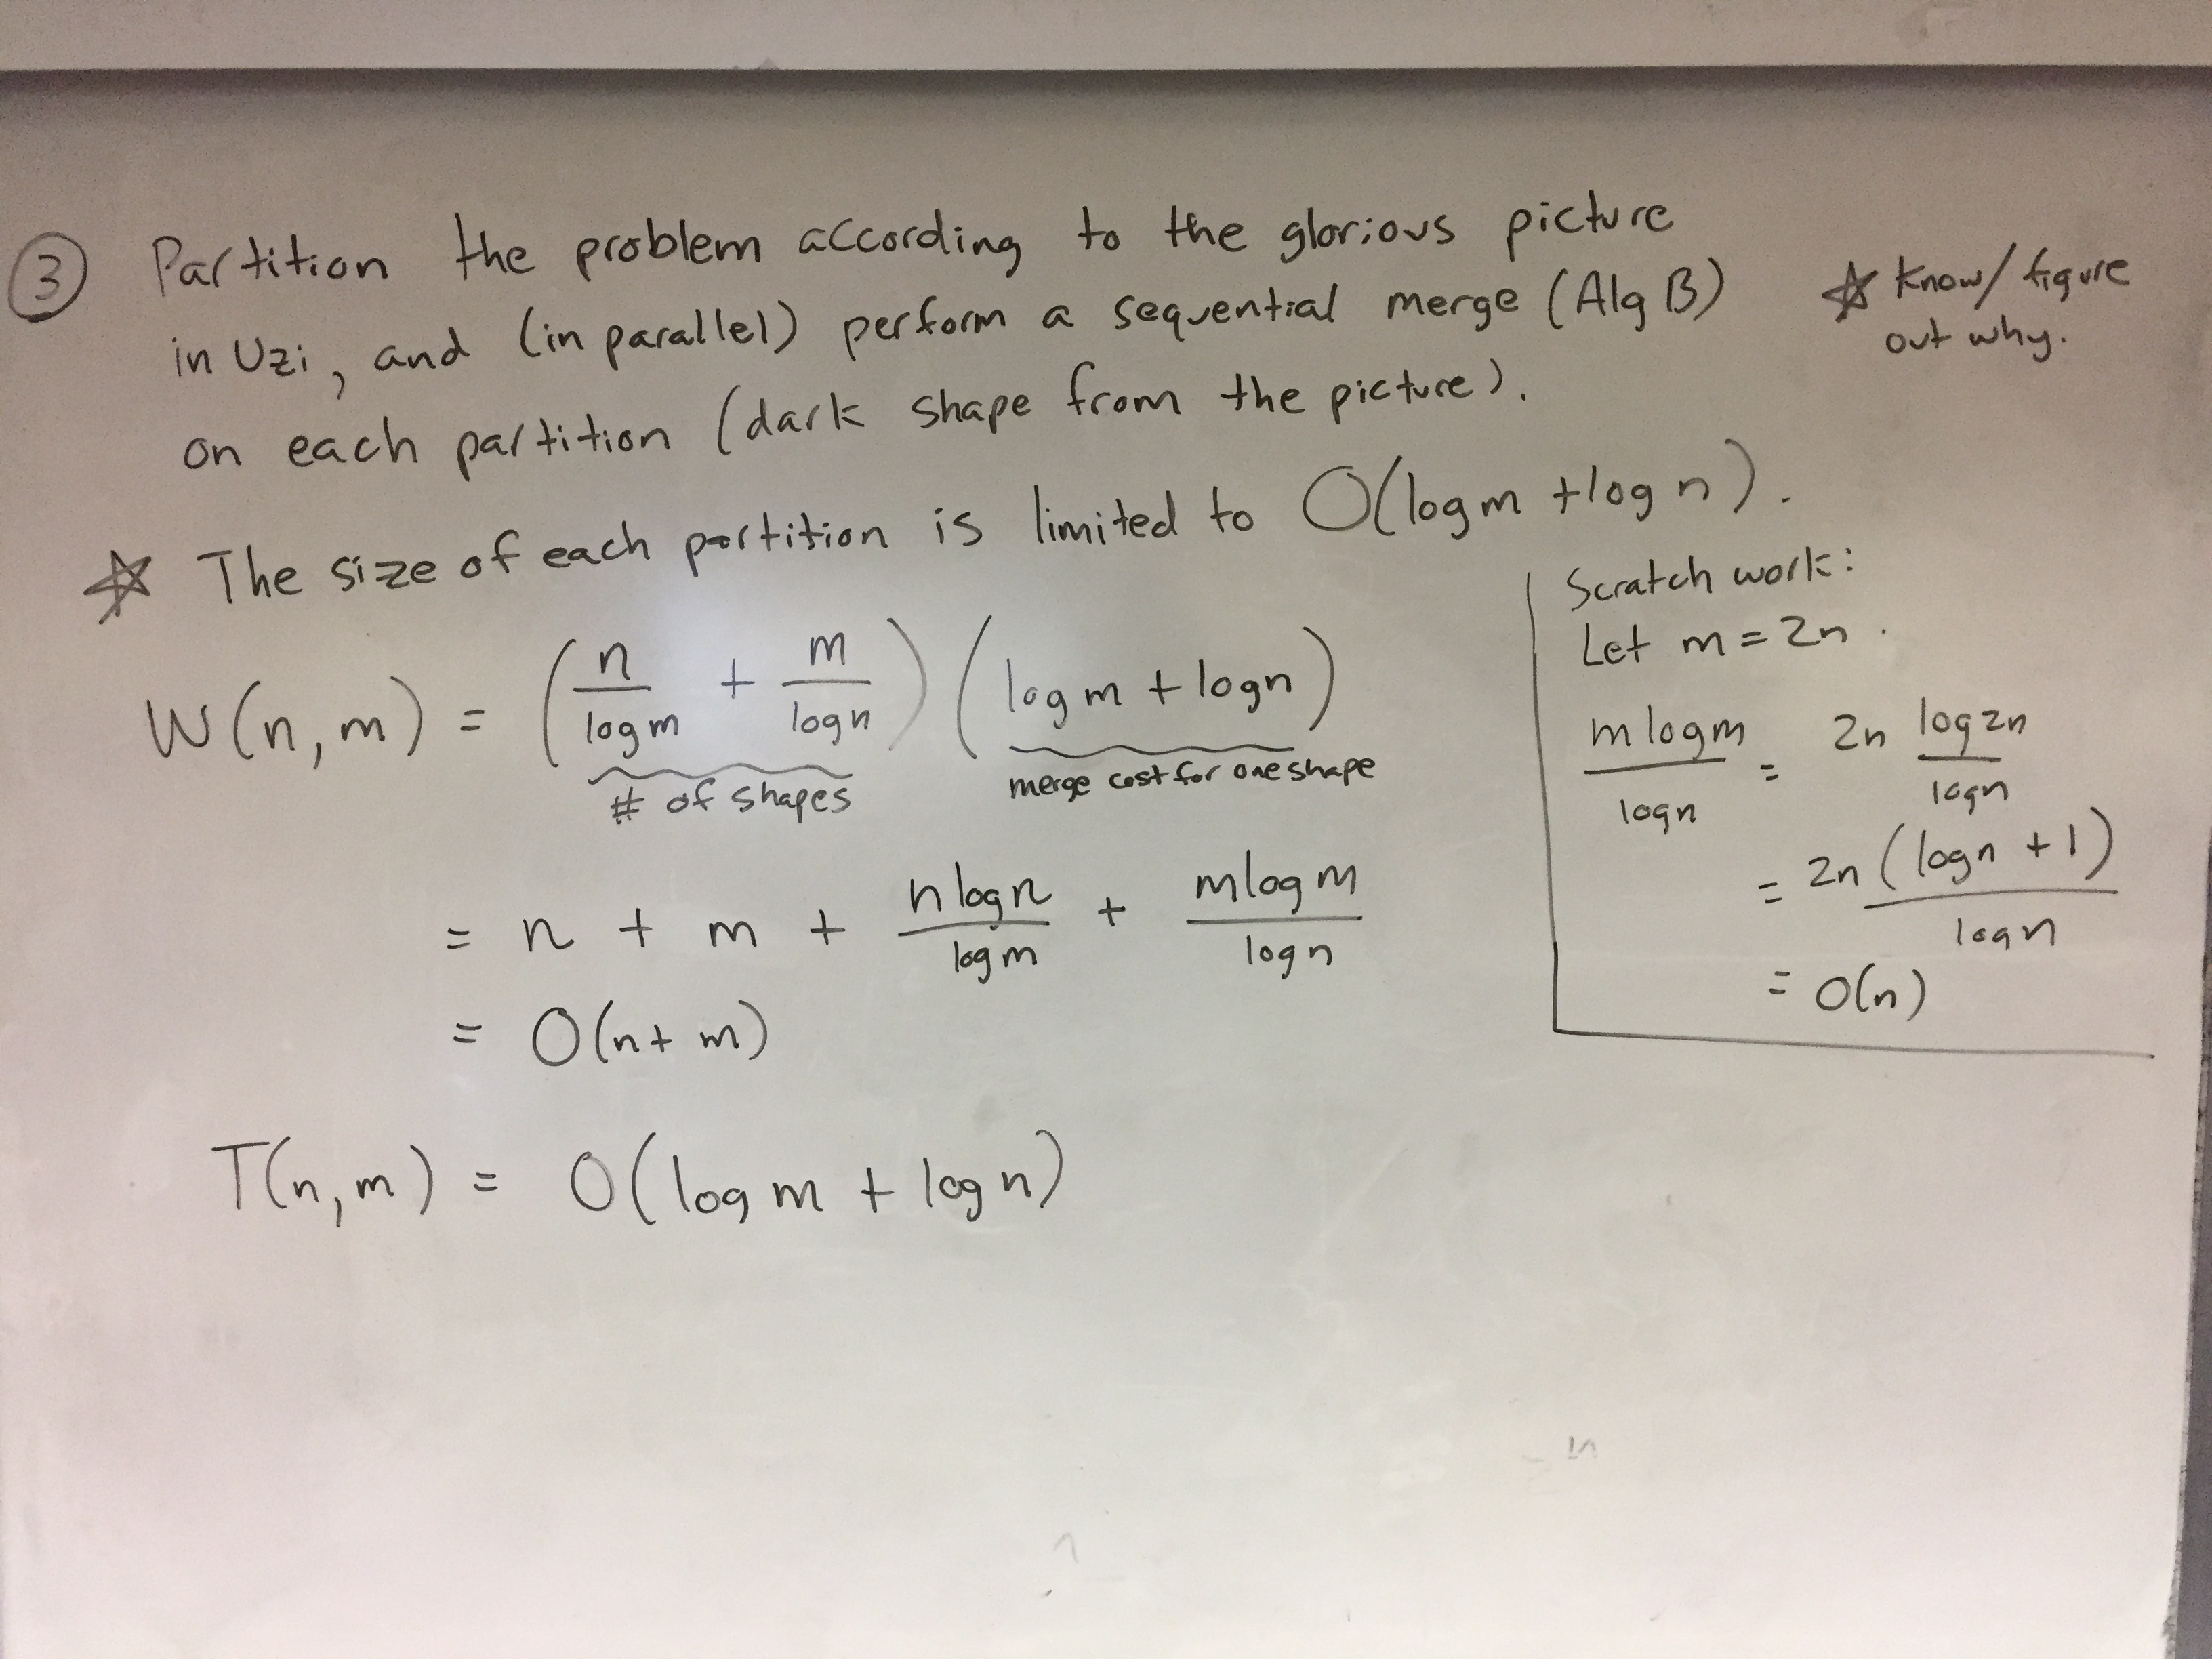 ③ Partition the problem according to the glorious picture
in Uzi, and (in parallel) perform a sequential merge (Alg B)
☆ Know/figure
out why.
on each partition (dark shape from the picture).
☆ The size of each partition is limited to O(log m + log n).
W(n, m) = (n/log m + m/log n) (log m + log n)
# of shapes
merge cost for one shape
= n + m + n log n/log m + m log m/log n
= O(n + m)
T(n, m) = O(log m + log n)
Scratch work:
Let m = 2n.
m log m/log n = 2n log 2n/log n
= 2n (log n + 1)/log n
= O(n)